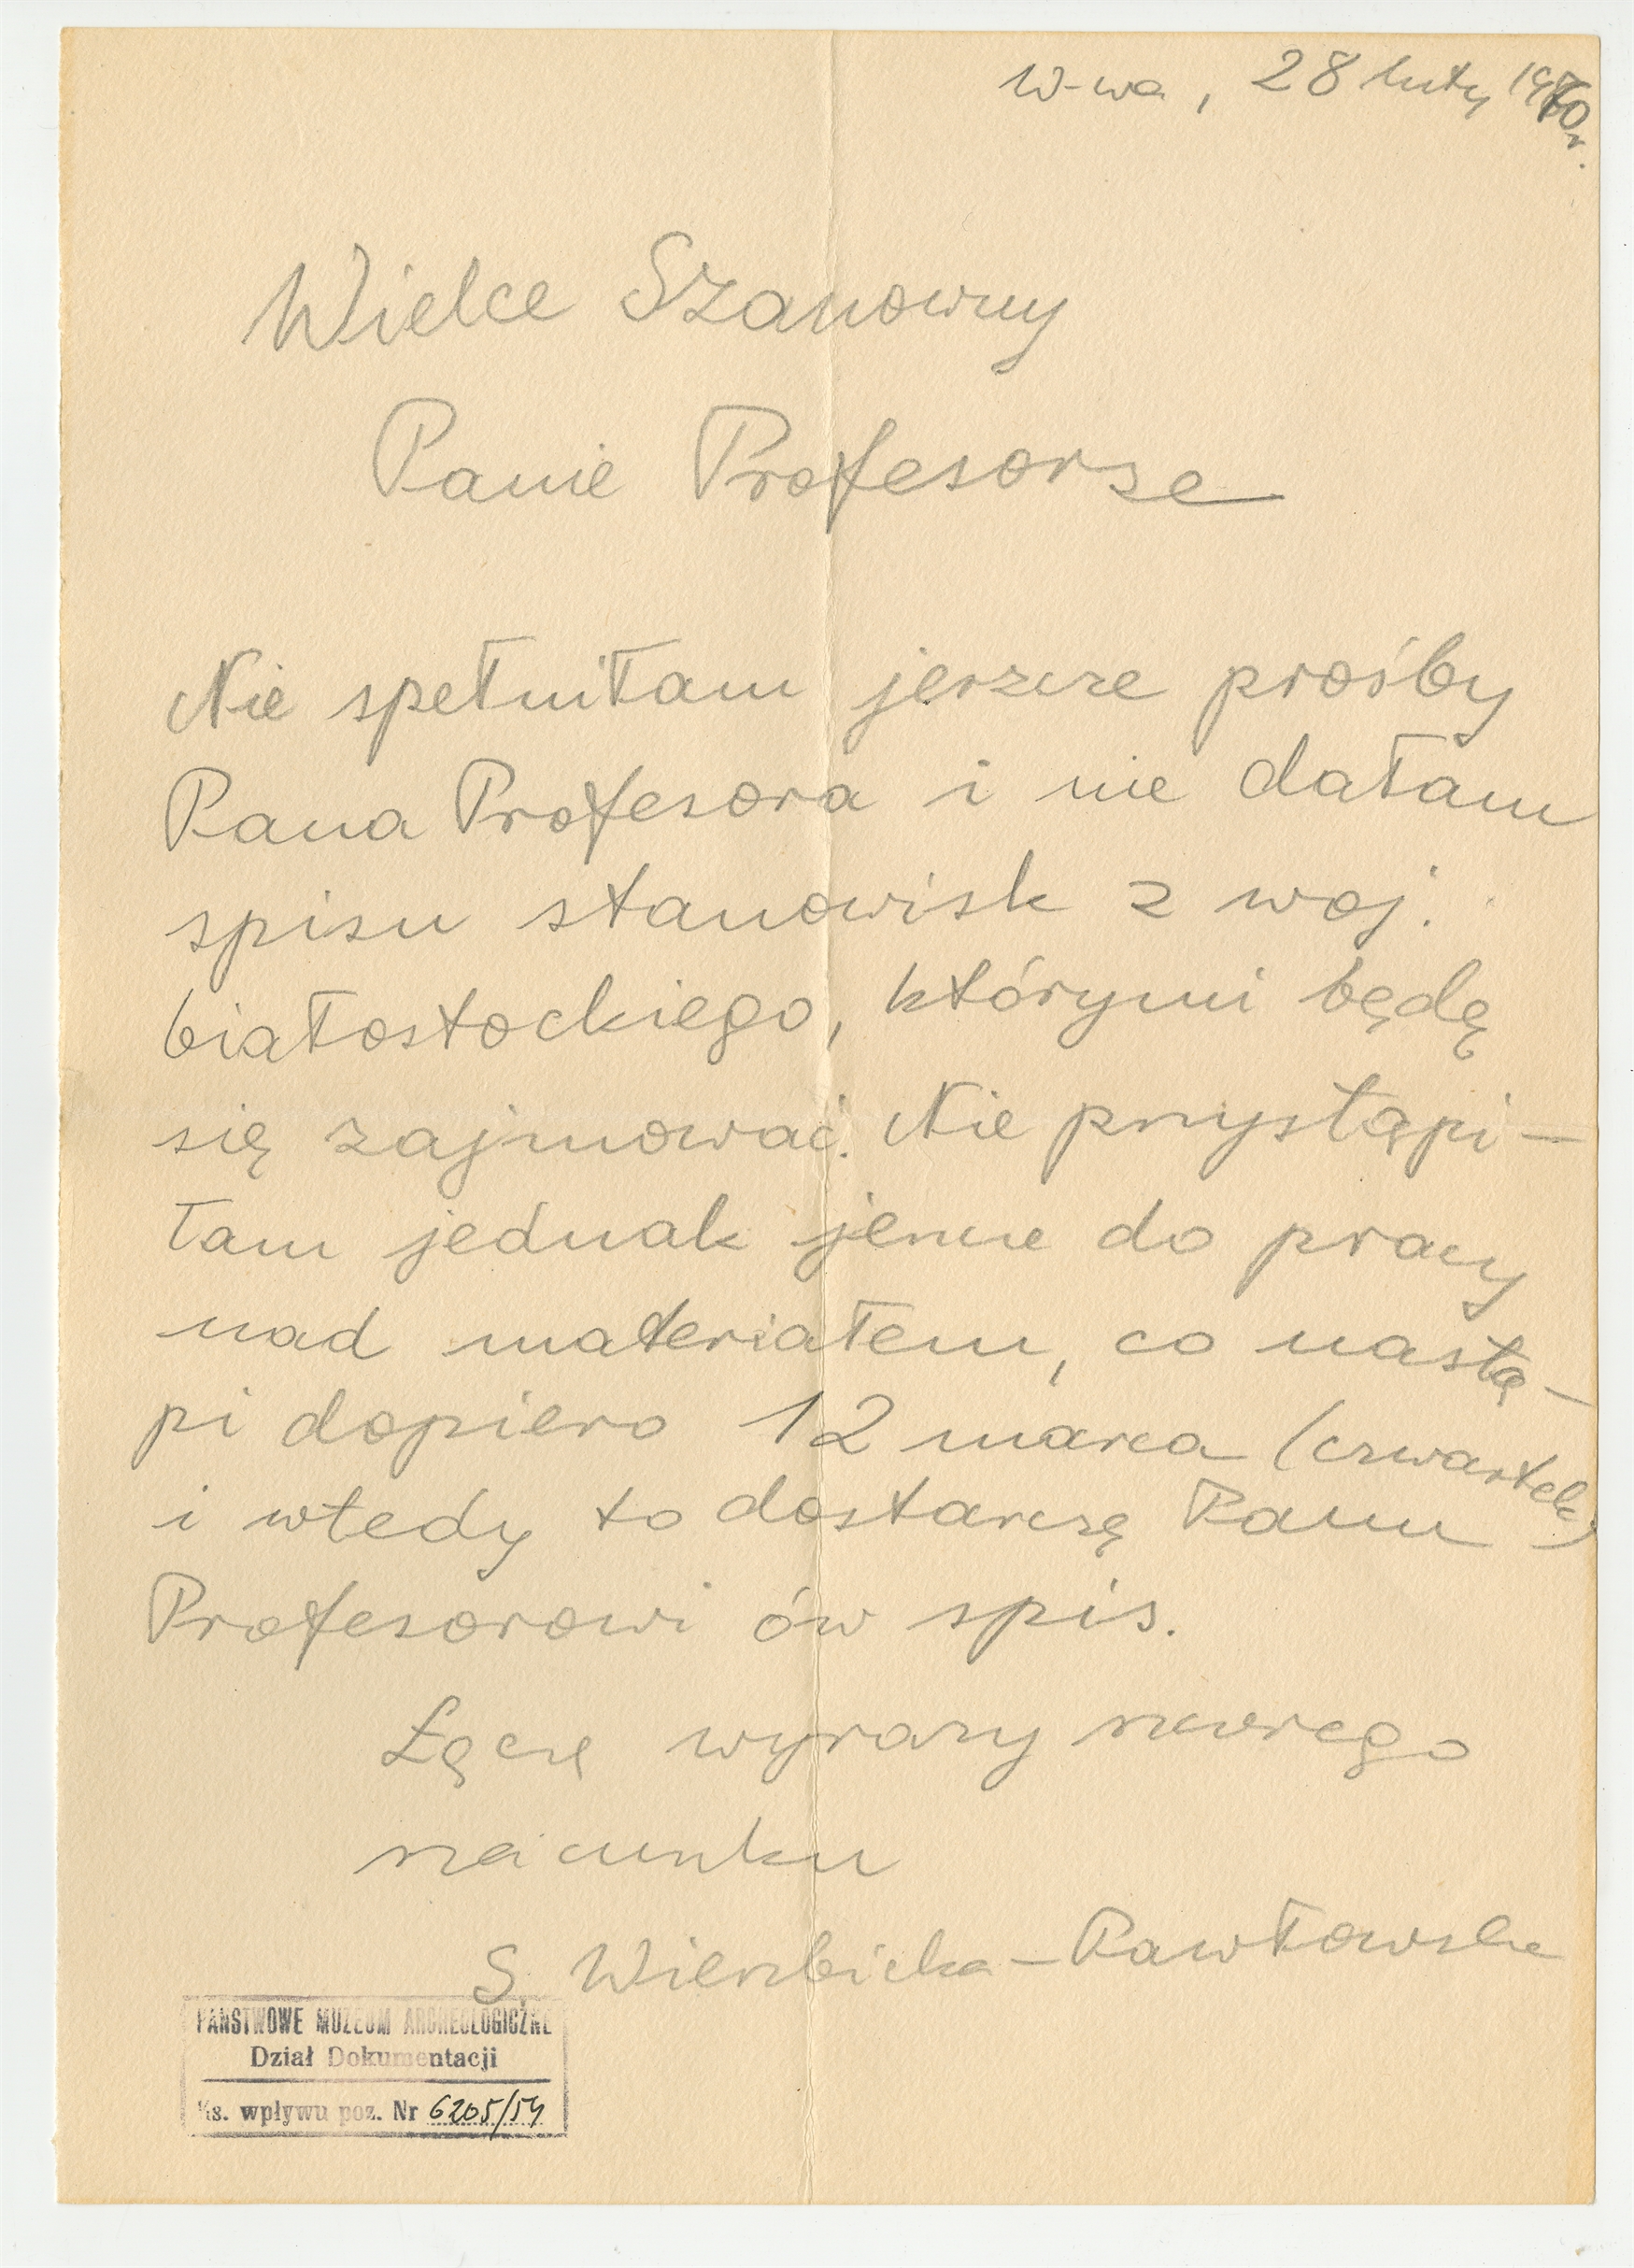 W-wa, 28 luty 1970r.
Wielce Szanowny
Panie Profesorze
Nie spełniłam jeszcze prośby
Pana Profesora i nie dałam
spisu stanowisk z woj.
białostockiego, którymi będę
się zajmować. Nie przystąpi-
łam jednak jeszcze do pracy
nad materiałem, co nastą-
pi dopiero 12 marca (czwartek)
i wtedy to dostarczę Panu
Profesorowi ów spis.
Łączę wyrazy szczerego
szacunku
S. Wierzbicka-Pawłowska
PAŃSTWOWE MUZEUM ARCHEOLOGICZNE
Dział Dokumentacji
Ks. wpływu poz. Nr 6205/54